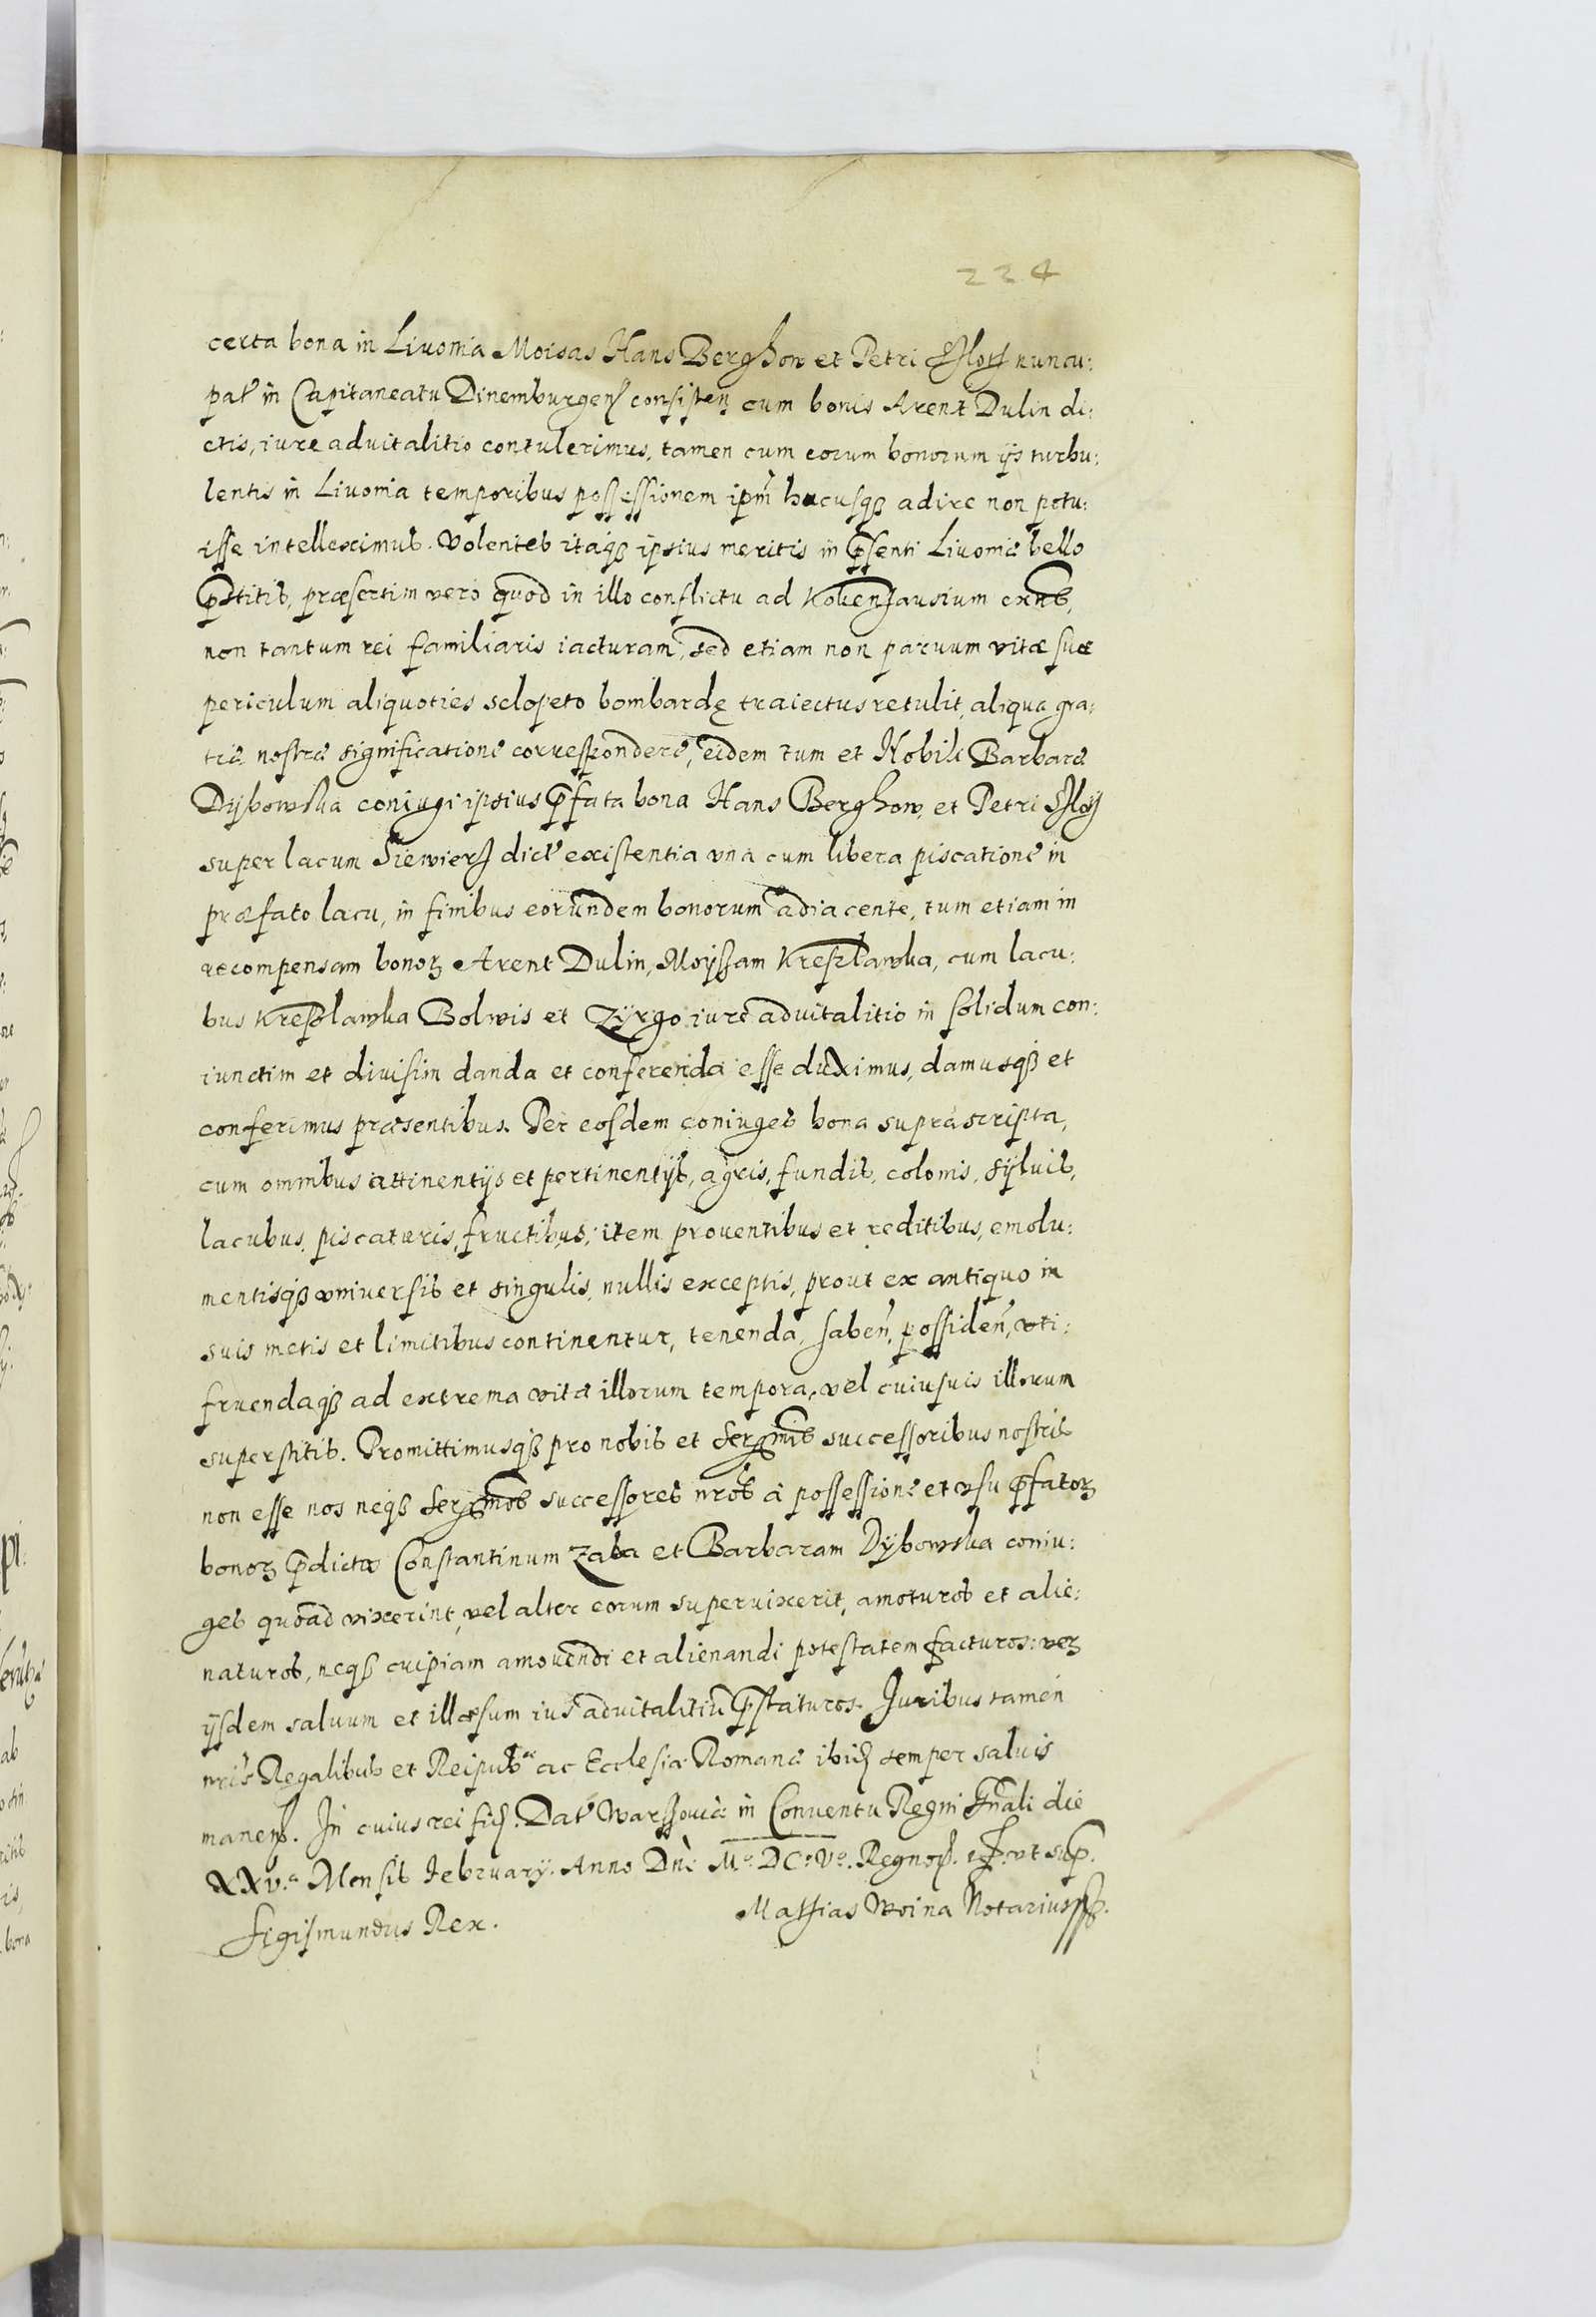 224
certa bona in Livonia Moisas Hans Berghow et Petri nuncu:
pat in Capitaneatu Dinemburgen consisten cum bonis Arent Dulin di:
ctis, iure advitalitio contulerimus, tamen cum eorum bonorum ijs turbu:
lentis in Livonia temporibus possessionem ipm hucusq adire non potu:
isse intelleximus. Volentes itaq ipsius meritis in psenti Livoniæ bello
pstitis, præsertim vero quod in illo conflictu ad Kokenhausium exns,
non tantum rei familiaris iacturam, sed etiam non parvum vitæ suæ
periculum aliquoties sclopeto bombardę traiectus retulit, aliqua gra:
tiæ nostræ significatione correspondere, eidem tum et Nobili Barbaræ
Dybowska coniugi ipsius pfata bona Hans Berghow, et Petri
super lacum Siewierz dict existentia una cum libera piscatione in
præfato lacu, in finibus eorundem bonorum adiacente, tum etiam in
recompensam bonoꝝ Arent Dulin, Moyssam Kreszlawka, cum lacu:
bus Kreszlawka Bolwis et Zyrgo iure advitalitio in solidum con:
iunctim et divisim danda et conferenda esse duximus, damusq et
conferimus præsentibus. Per eosdem coniuges bona suprascripta,
cum omnibus attinentijs et pertinentijs, agris, fundis, colonis, sylvis,
lacubus, piscaturis, fructibus, item proventibus et reditibus, emolu:
mentisq universis et singulis, nullis exceptis, prout ex antiquo in
suis metis et limitibus continentur, tenenda, haben, possiden, uti:
fruendaq ad extrema vitæ illorum tempora, vel cuiusvis illorum
superstitis. Promittimusq pro nobis et Sermis successoribus nostris
non esse nos neq Sermos successores nros a possessione et usu pfatoꝝ
bonoꝝ pdictos Constantinum Zaba et Barbaram Dybowska coniu:
ges quoad vixerint, vel alter eorum supervixerit, amoturos et alie:
naturos, neq cuipiam amovendi et alienandi potestatem facturos: veꝝ
ijsdem salvum et illæsum ius advitalitiu pstaturos. Juribus tamen
nris Regalibus et Reipub ac Ecclesiæ Romanæ ibid semper salvis
manen. In cuius rei fid. Dat Warssoviæ in Conventu Regni Gnali die
XXV.a Mensis February. Anno Dni Mo DCo Vo. Regnor. ut sup.
Sigismundus Rex.
Mathias Woina Notarius